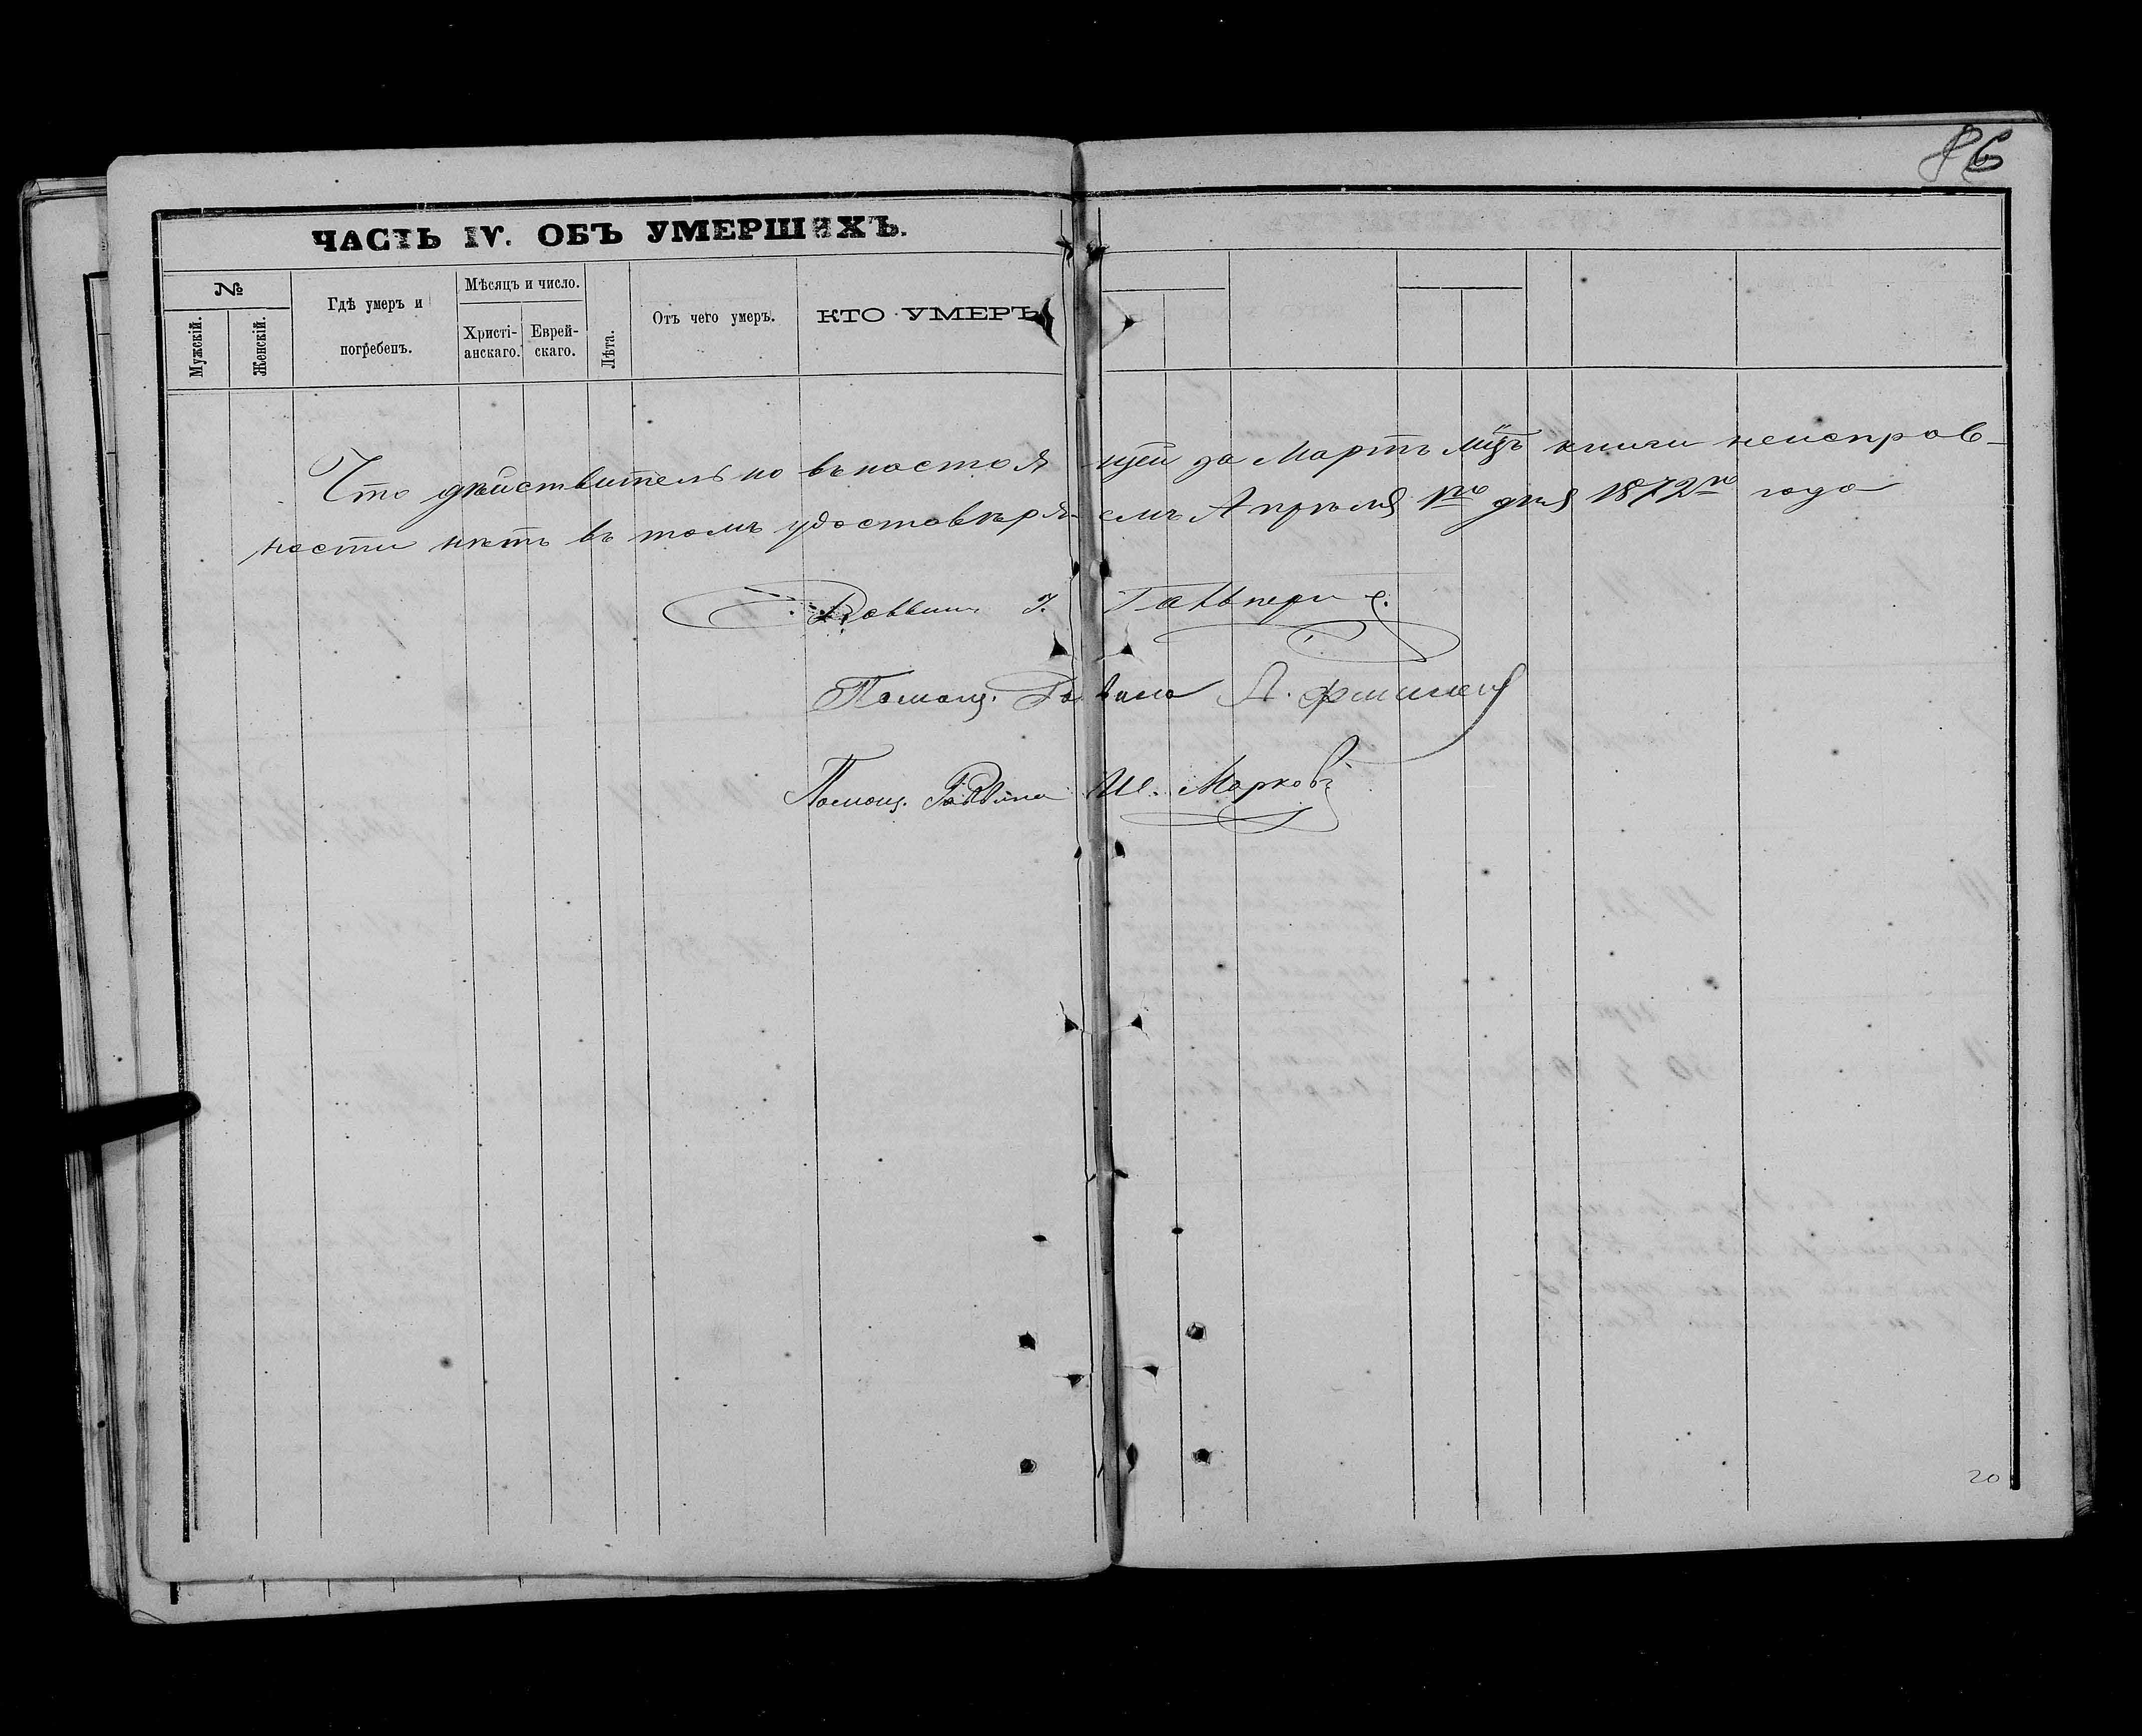 86
ЧАСТЬ IV. ОБЪ УМЕРШИХЪ.
№
Мужскій.
Женскій.
Гдѣ умеръ и
погребенъ.
Мѣсяцъ и число.
Христі-
анскаго.
Еврей-
скаго.
Лѣта.
Отъ чего умеръ.
КТО УМЕРЪ
Что дѣйствительно въ настоя щей за Мартъ мцъ книги неисправ-
ности нѣтъ въ томъ удостовѣря- емъ Апрѣля 1го дня 1872го года
Раввинъ I. Гальперн
Помощ. Раввина А.
Помощ. Раввина Ш. Марковъ
20